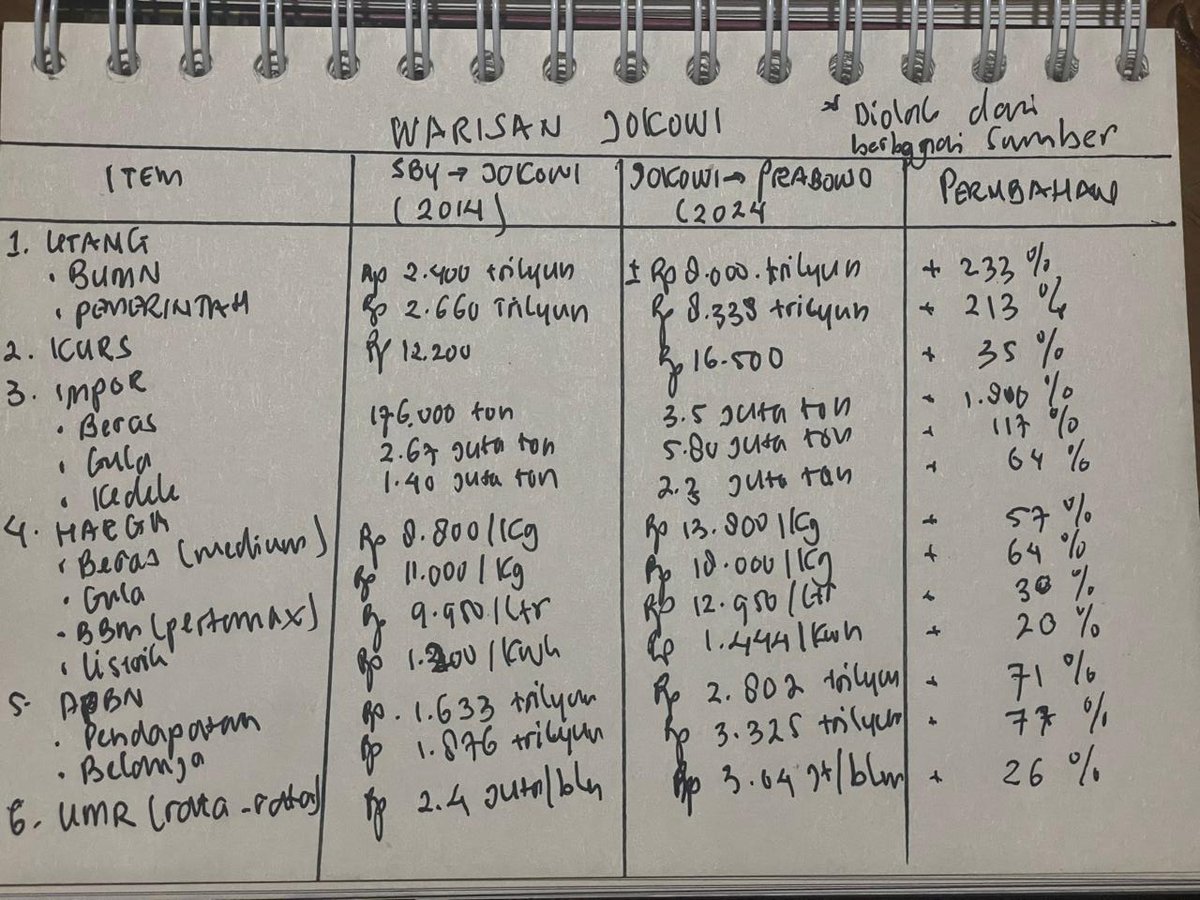 WARISAN JOKOWI
* Diolah dari
berbagai sumber
ITEM
SBY → JOKOWI
(2014)
JOKOWI → PRABOWO
(2024
PERUBAHAN
1. UTANG
• BUMN Rp 2.400 trilyun ± Rp 8.000. trilyun + 233 %
• PEMERINTAH Rp 2.660 Trilyun Rp 8.338 trilyun + 213 %
2. KURS Rp 12.200 Rp 16.500 + 35 %
3. IMPOR
• Beras 176.000 ton 3.5 juta ton + 1.900 %
• Gula 2.67 juta ton 5.80 juta ton + 117 %
• Kedele 1.40 juta ton 2.3 juta ton + 64 %
4. HARGA
• Beras (medium) Rp 8.800/Kg Rp 13.800/Kg + 57 %
• Gula Rp 11.000/Kg Rp 18.000/Kg + 64 %
• BBM (pertamax) Rp 9.950/Ltr Rp 12.950/Ltr + 30 %
• Listrik Rp 1.200/Kwh Rp 1.444/Kwh + 20 %
5. APBN
• Pendapatan Rp. 1.633 trilyun Rp 2.802 trilyun + 71 %
• Belanja Rp 1.876 trilyun Rp 3.325 trilyun + 77 %
6. UMR (rata-rata) Rp 2.4 juta/bln Rp 3.04 jt/bln + 26 %